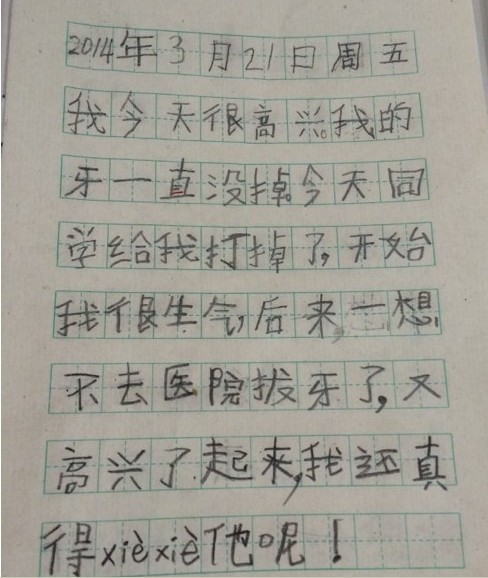 2014年3月21日周五
我今天很高兴。我的
牙一直没掉。今天同
学给我打掉了,开始
我很生气,后来,一想,
不去医院拔牙了,又
高兴了起来,我还真
得xièxiè他呢!